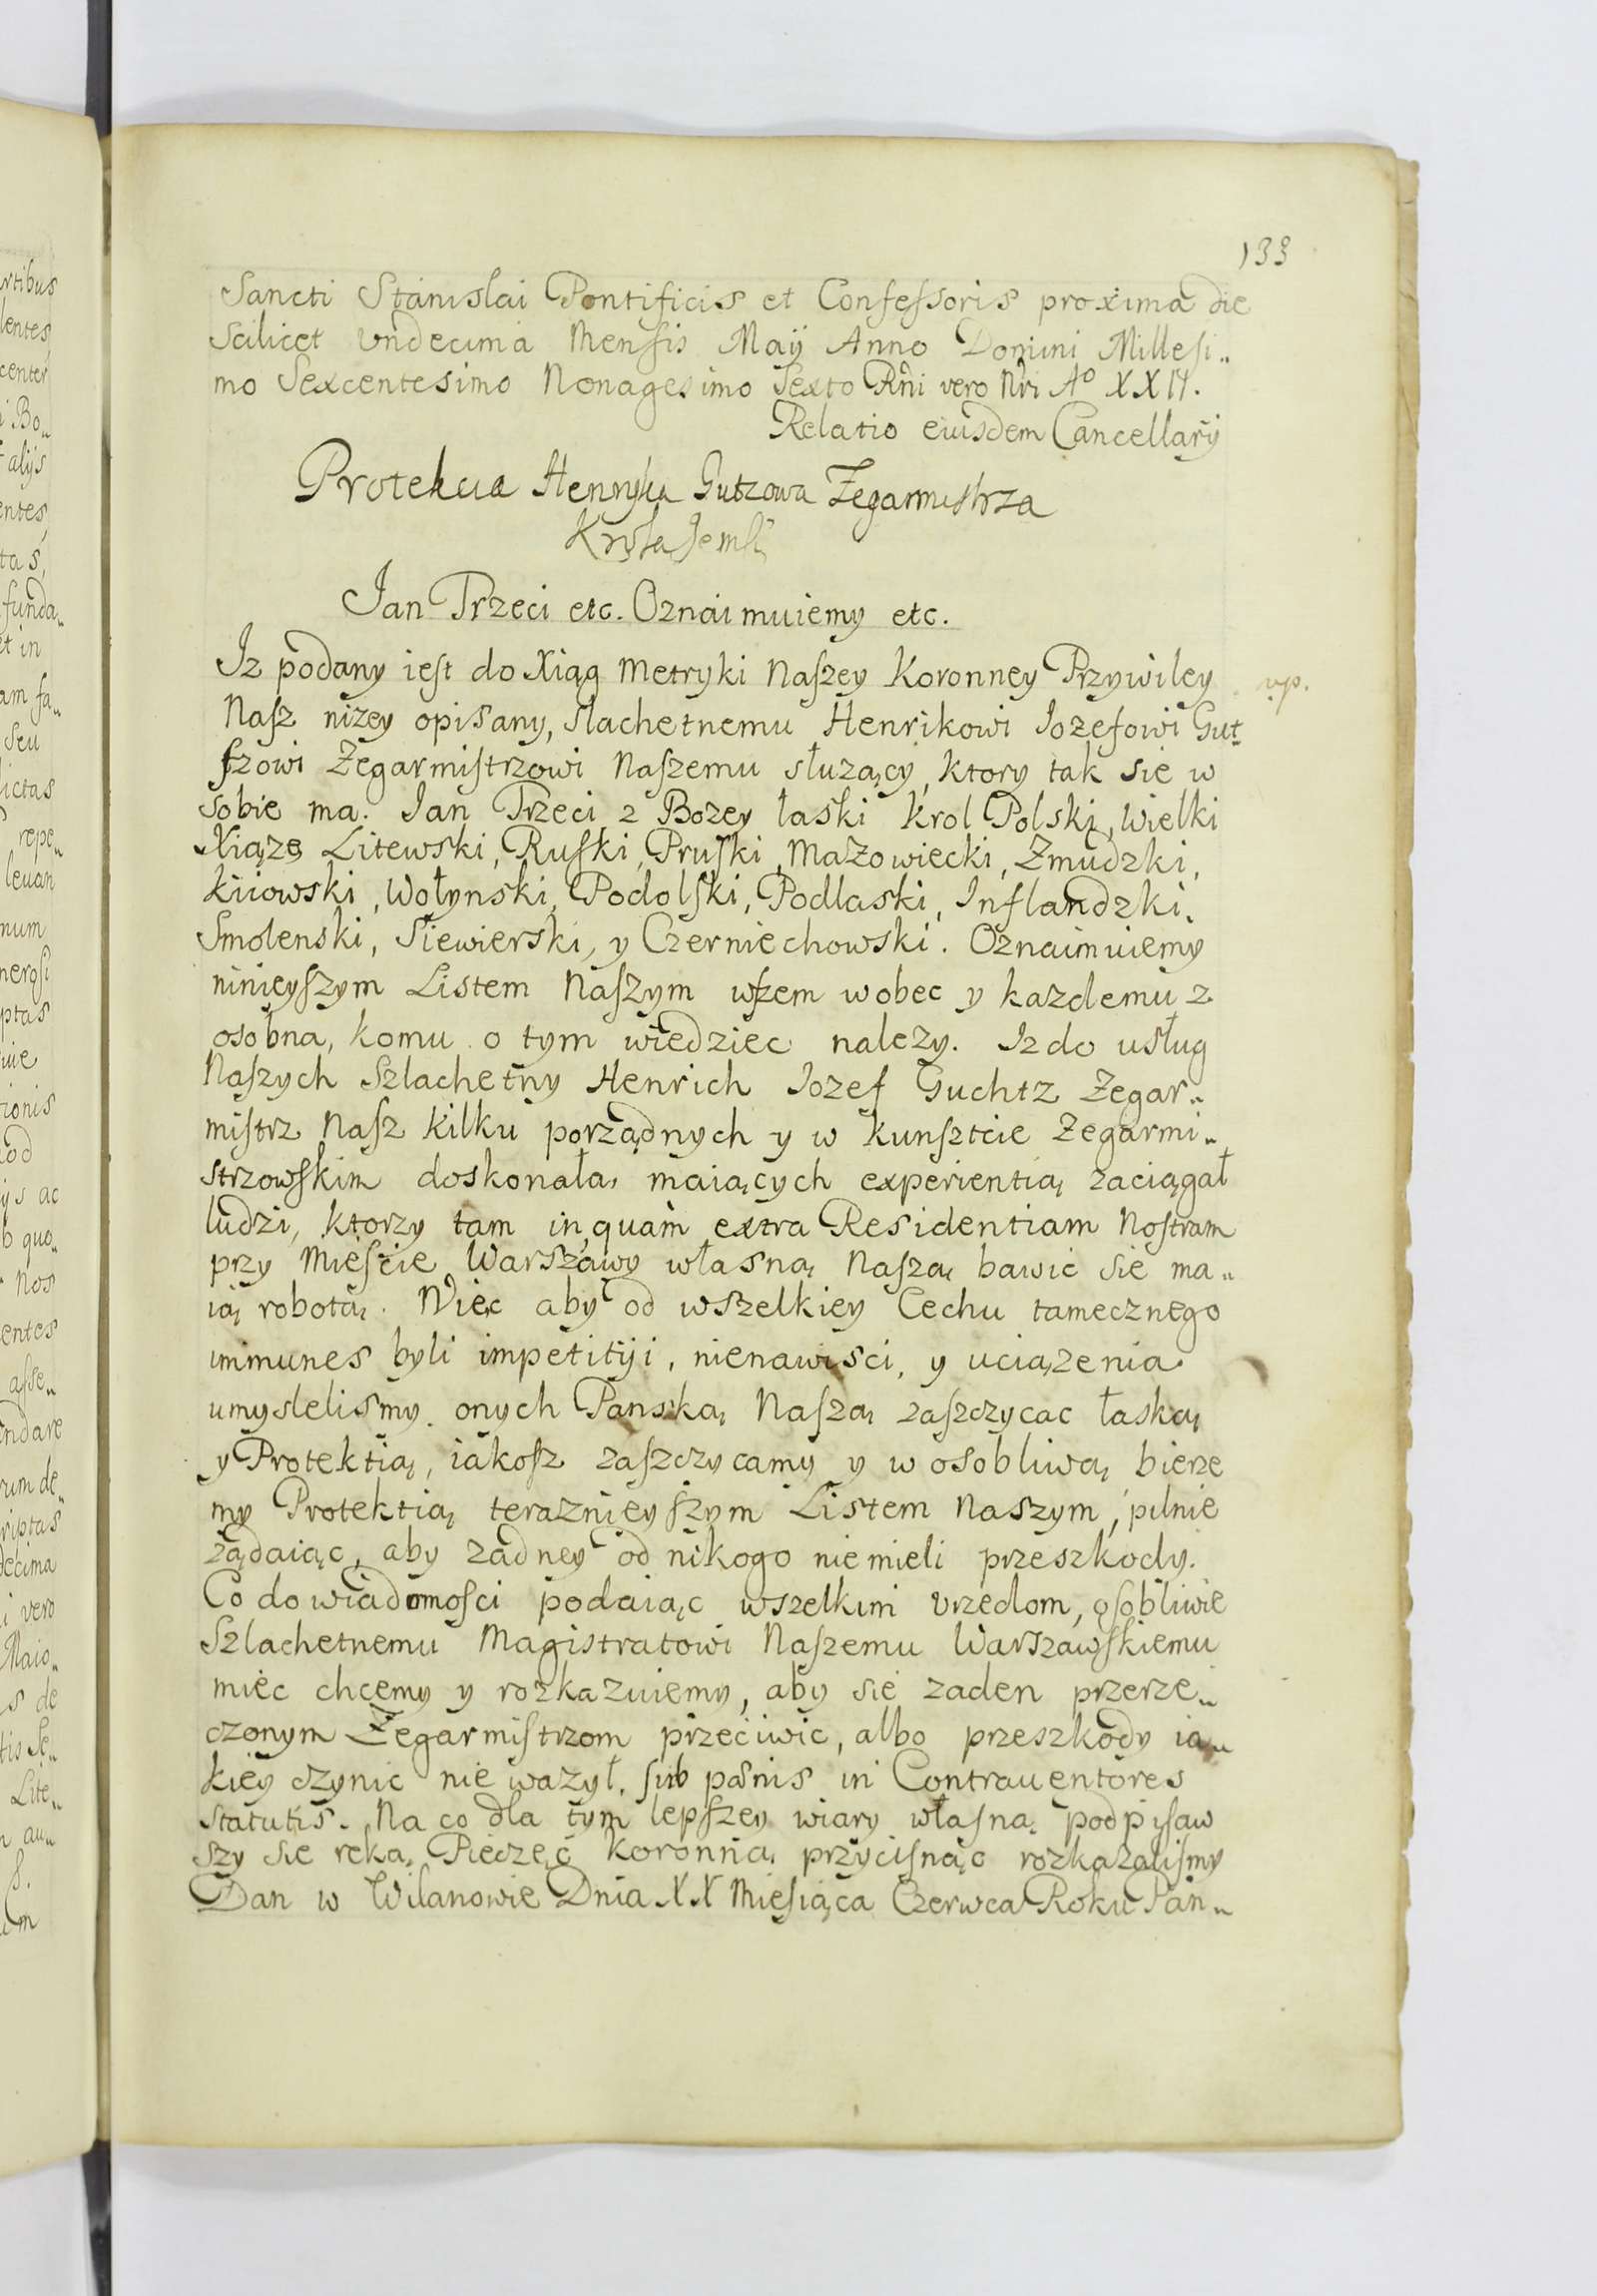 133
Sancti Stanislai Pontificis et Confessoris proxima die
Scilicet Vndecima Mensis Maÿ Anno Domini Millesi„
mo Sexcentesimo Nonagesimo Sexto Rni vero Nri Aº XXII.
Relatio eiusdem Cancellarÿ
Protekcia Henryka Gutzowa Zegarmistrza
Krola Jemsci
Jan Trzeci etc. Oznaimuiemy etc.
Jz podany iest do Xiąg Metryki Naszey Koronney Przywiley
Nasz nizey opisany, slachetnemu Henrikowi Iozefowi Gut„
szowi Zegarmistrzowi Naszemu słuzący, ktory tak sie w
sobie ma. Jan Trzeci z Bozey łaski Krol Polski, Wielki
Xiąze Litewski, Ruski, Pruski, Mazowiecki, Zmudzki,
Kiiowski, Wołynski, Podolski, Podlaski, Inflandzki,
Smolenski, Siewierski, y Czerniechowski. Oznaimuiemy
ninieyszym Listem Naszym wszem wobec y kazdemu z
osobna, komu o tym wiedziec nalezy. Iz do usług
Naszych Szlachetny Henrich Iozef Guchtz Zegar„
mistrz Nasz kilku porządnych y w kunsztcie Zegarmi„
strzowskim doskonałą maiących experientią zaciągał
ludzi, ktorzy tam in quam extra Residentiam Nostram
przy Mieście Warszawy własną Naszą bawic sie ma„
ią robotą. Więc aby od wszelkiey Cechu tamecznego
immunes byli impetitÿi, nienawisci, y uciązenia
umyslelismy onych Panską Naszą zaszczycac łaską
y Protektią, iakosz zaszczycamy y w osobliwą bierze
my Protektią teraznieyszym Listem Naszym, pilnie
ządaiąc, aby zadney od nikogo niemieli przeszkody.
Co do wiadomosci podaiąc wszelkim Vrzędom, osobliwie
Szlachetnemu Magistratowi Naszemu Warszawskiemu
miec chcemy y rozkazuiemy, aby sie zaden przerze„
czonym Zegarmistrzom przeciwic, albo przeszkody ia„
kiey czynic nie wazył, sub pænis in Contrauentores
statutis. Na co dla tym lepszey wiary własną podpisaw
szy sie ręką, Pieczęć Koronną przycisnąc rozkazalismy
Dan w Wilanowie Dnia XX Miesiąca Czerwca Roku Pan„